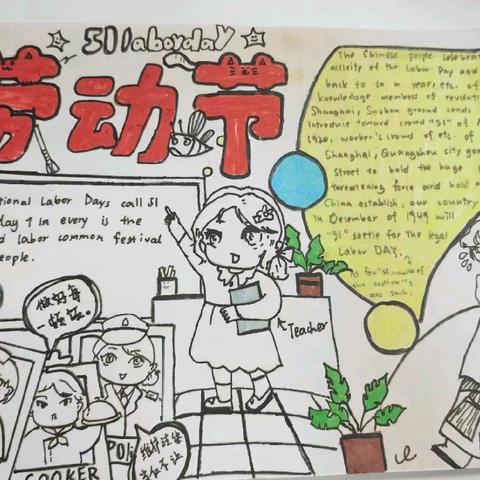 501 laborday
劳动节
tional Labor Days call 51
day 1 in every is the
d labor common festival
eople.
The Chinese people celebrat
activity of the Labor Day and
back to to a year, etc. of
knowledge members of revoluti
Shanghai, Suzhou ground sends
introduce toward crowd "51" of
1920, worker's crowd of etc. of
Shanghai, Quangzhou city go
street to hold the huge
threatening force and hold a
China establish, our country
in December of 1949 will
"51" settle for the legal
Labor DAY.
As for "51
the section's
are such.
A Teacher
做好每
一顿饭。
COOKER
POli